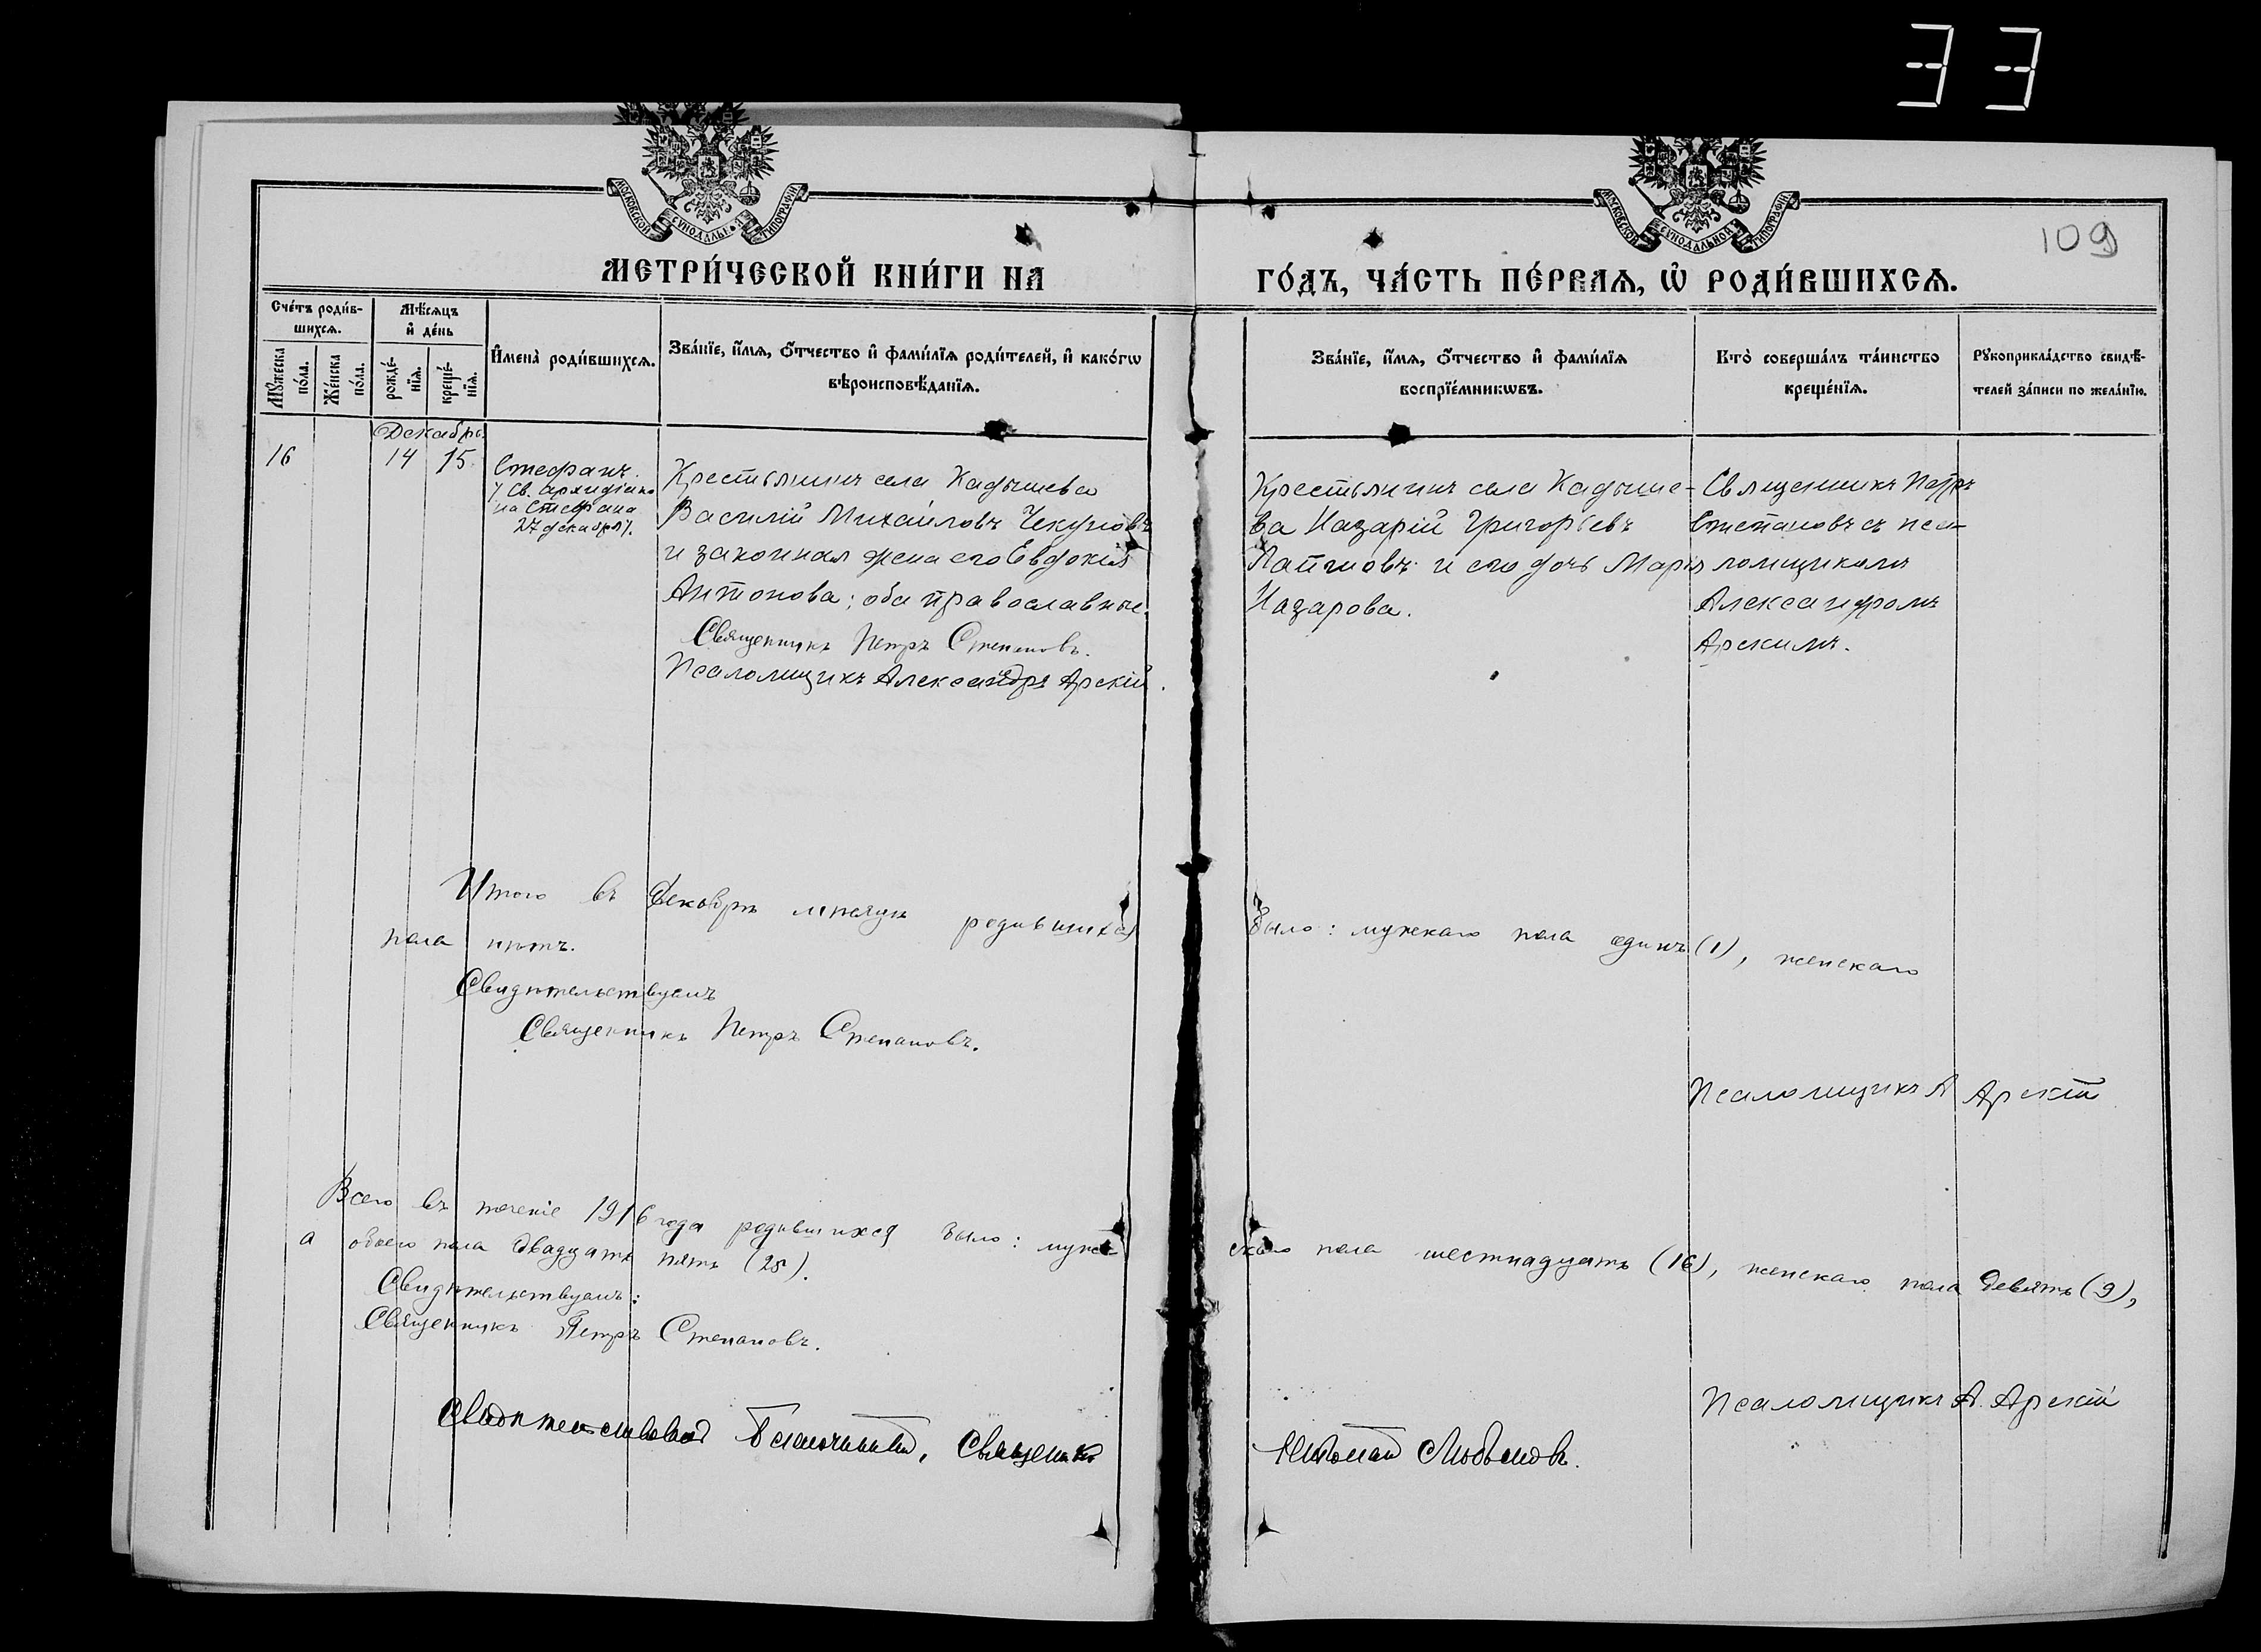 109
МОСКОВСКОЙ СУНОДАЛЬНОЙ ТИПОГРАФІИ
МОСКОВСКОЙ СУНОДАЛЬНОЙ ТИПОГРАФІИ
МЕТРИ́ЧЕСКОЙ КНИ́ГИ НА
ГО́ДЪ, ЧА́СТЬ ПЕ́РВАѦ, Ѡ҆ РОДИ́ВШИХСѦ.
Сче́тъ роди́в-
шихсѧ.
Мꙋ́жеска по́ла.
Же́нска по́ла.
Мѣ́сѧцъ
и҆ де́нь
рожде́-
нїѧ.
креще́-
нїѧ.
И҆мена̀ роди́вшихсѧ.
Зва́нїе, и҆́мѧ, ѻ҆́тчество и҆ фами́лїѧ роди́телей, и҆ како́гѡ
вѣроисповѣ́данїѧ.
Зва́нїе, и҆́мѧ, ѻ҆́тчество и҆ фами́лїѧ
воспрїе́мникѡвъ.
Кто̀ соверша́лъ та́инство
креще́нїѧ.
Рꙋкоприкла́дство свидѣ́-
телей за́писи по жела́нїю.
Декабрь
16
14
15
Стефанъ
/ Св. архидіако
на Стефана
27 декабря/.
Крестьянинъ села Кадышева
Василій Михаиловъ Чекуновъ
и законная жена его Евдокія
Антонова; оба православные.
Священникъ Петръ Степановъ.
Псаломщикъ Александръ Арскій.
Крестьянинъ села Кадыше-
ва Назарій Григорьевъ
и его дочь Марія
Назарова.
Священникъ Петръ
Степановъ съ пса-
ломщикомъ
Александромъ
Арскимъ.
Итого въ Декабрѣ мѣсяцѣ родившихся было: мужскаго пола одинъ (1), женскаго
пола нѣтъ.
Свидѣтельствуемъ
Священникъ Петръ Степановъ.
Псаломщикъ А Арскій
Всего въ теченіе 1916 года родившихся было: мужескаго пола шестнадцать (16), женскаго пола девять (9),
а обоего пола двадцать пять (25).
Свидѣтельствуемъ:
Священникъ Петръ Степановъ.
Псаломщикъ А. Арскій
Благочинный, Священникъ